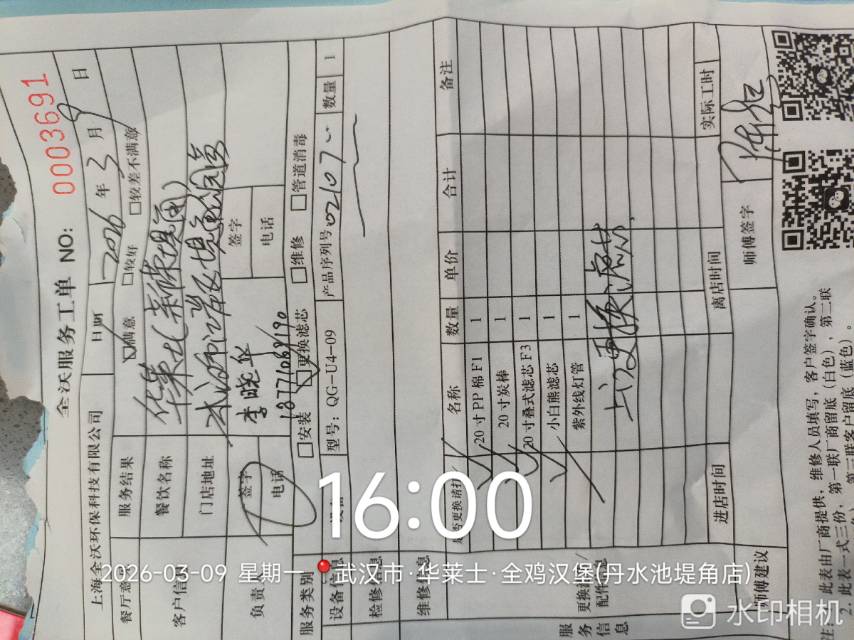 全沃服务工单 NO: 0003691
上海全沃环保科技有限公司 日期 2026 年 3 月 9 日
餐厅意 服务结果 ☑满意 □较好 □较差不满意
客户信 餐饮名称 华莱士(新陈堤角)
门店地址 武汉市江岸区堤角
负责人 签字 李晓华 签字
电话 13771069190 电话
服务类别 □安装 ☑更换滤芯 □维修 □管道消毒
设备信息 型号: QG-U4-09 产品序列号 02107 数量 1
检修信息
维修信息
是否更换请打√ 名称 数量 单价 合计 备注
√ 20寸PP棉F1 1
√ 20寸炭棒 1
√ 20寸叠式滤芯F3 1
√ 小白熊滤芯 1
紫外线灯管 1
上门更换滤芯.
服务信息 更换 配件
进店时间 离店时间 实际工时
师傅建议 师傅签字
注:
此表由厂商提供,维修人员填写,客户签字确认。
2. 此表一式三份,第一联厂商留底(白色),第二联
第三联客户留底(蓝色)。
16:00
2026-03-09 星期一 武汉市·华莱士·全鸡汉堡(丹水池堤角店)
水印相机